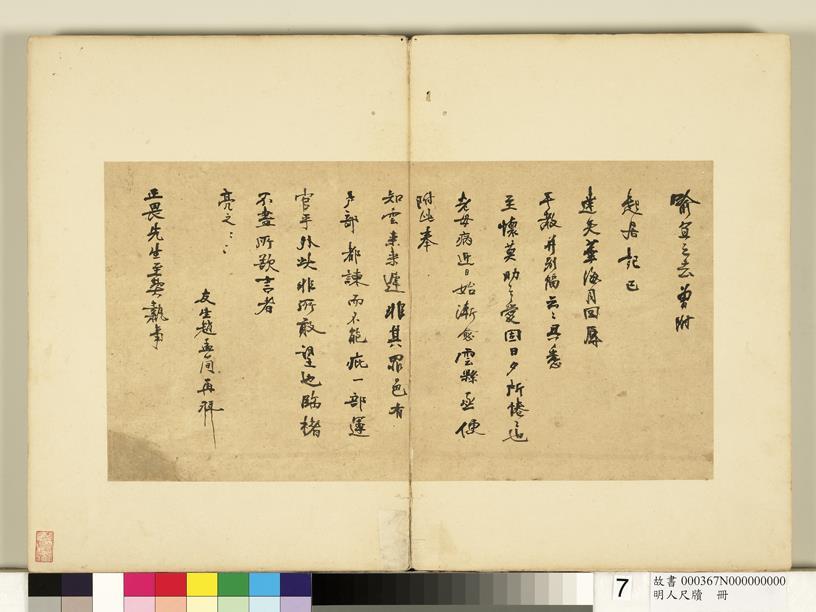 喻宜之去曾附
起居記已
達矣海月回辱
手教并別幅云云具悉
至懷莫助之愛固日夕所惓惓也
老母病近日始漸愈雲縣丞便
附此奉
知雲來遲非其罪邑有
戶部都諫而不能庇一部運
官乎外此非所敢望也臨楮
不盡所欲言者
亮之
友生趙孟再拜
正畏先生至契執事
7
故書 000367N000000000
明人尺牘 冊